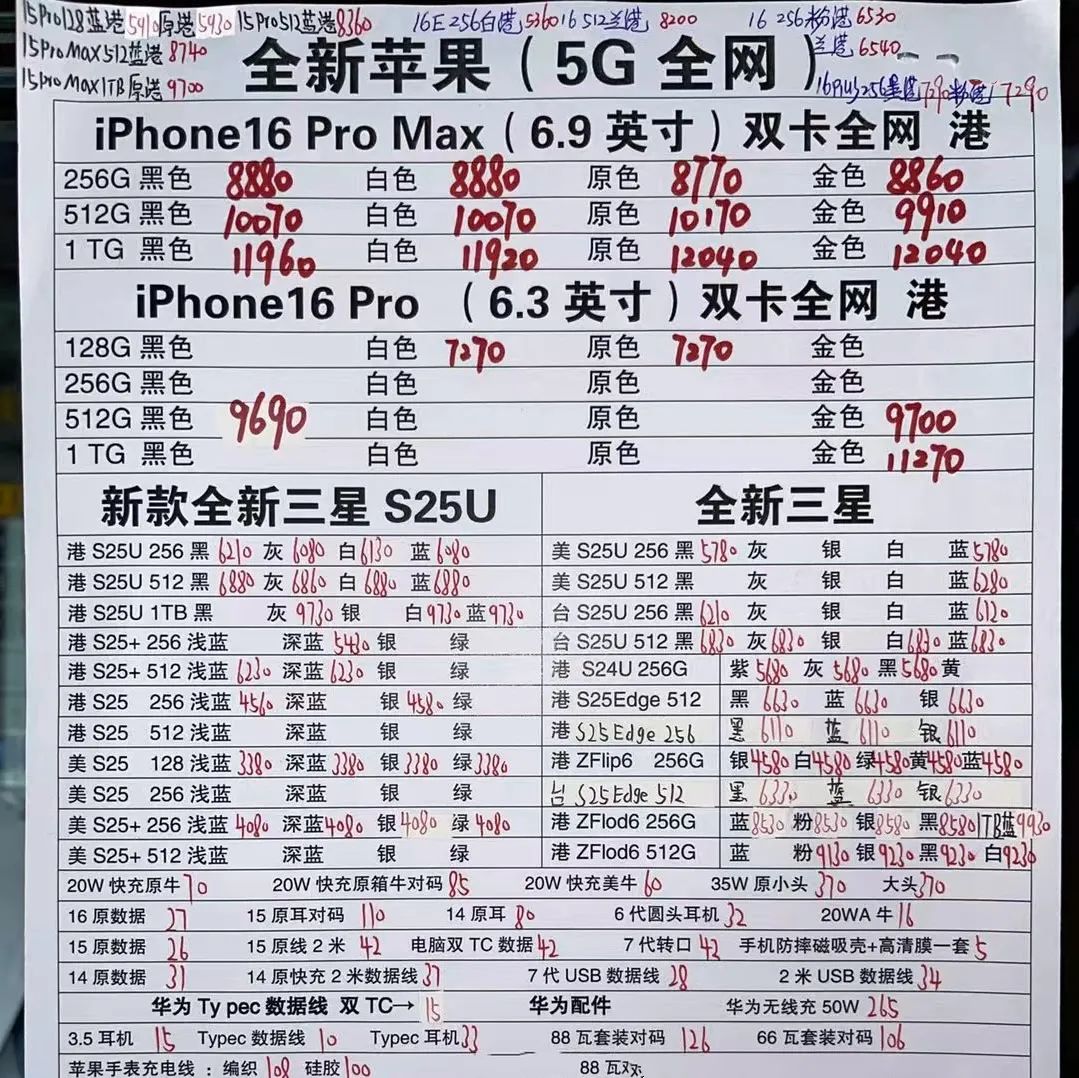 15Pro128蓝港5910原港5930 15Pro512蓝港8360 16E 256白港5360 16 512兰港8200 16 256粉港6530
兰港6540
15ProMax512蓝港8740
15proMax1TB原港9700
16Plus256黑港7290粉港7290
全新苹果（5G 全网）
iPhone16 Pro Max（6.9 英寸）双卡全网 港
256G 黑色 8880 白色 8880 原色 8770 金色 8860
512G 黑色 10070 白色 10070 原色 10170 金色 9910
1 TG 黑色 11960 白色 11920 原色 12040 金色 12040
iPhone16 Pro （6.3 英寸）双卡全网 港
128G 黑色 白色 7270 原色 7270 金色
256G 黑色 白色 原色 金色
512G 黑色 9690 白色 原色 金色 9700
1 TG 黑色 白色 原色 金色 11270
新款全新三星 S25U
港 S25U 256 黑 6210 灰 6080 白 6130 蓝 6080
港 S25U 512 黑 6880 灰 6860 白 6880 蓝 6880
港 S25U 1TB 黑 灰 9730 银 白 9730 蓝 9730
港 S25+ 256 浅蓝 深蓝 5430 银 绿
港 S25+ 512 浅蓝 6230 深蓝 6230 银 绿
港 S25 256 浅蓝 4560 深蓝 银 4580 绿
港 S25 512 浅蓝 深蓝 银 绿
美 S25 128 浅蓝 3380 深蓝 3380 银 3380 绿 3380
美 S25 256 浅蓝 深蓝 银 绿
美 S25+ 256 浅蓝 4080 深蓝 4080 银 4080 绿 4080
美 S25+ 512 浅蓝 深蓝 银 绿
全新三星
美 S25U 256 黑 5780 灰 银 白 蓝 5780
美 S25U 512 黑 灰 银 白 蓝 6280
台 S25U 256 黑 6210 灰 银 白 蓝 6120
台 S25U 512 黑 6830 灰 6830 银 白 6830 蓝 6830
港 S24U 256G 紫 5680 灰 5680 黑 5680 黄
港 S25Edge 512 黑 6630 蓝 6630 银 6630
港 S25Edge 256 黑 6110 蓝 6110 银 6110
港 ZFlip6 256G 银 4580 白 4580 绿 4580 黄 4580 蓝 4580
台 S25Edge 512 黑 6330 蓝 6330 银 6330
港 ZFlod6 256G 蓝 8530 粉 8530 银 8580 黑 8580 1TB蓝 9930
港 ZFlod6 512G 蓝 粉 9130 银 9230 黑 9230 白 9230
20W 快充原牛 70 20W 快充原箱牛对码 85 20W 快充美牛 60 35W 原小头 370 大头 370
16 原数据 27 15 原耳对码 110 14 原耳 80 6 代圆头耳机 32 20WA 牛 16
15 原数据 26 15 原线 2 米 42 电脑双 TC 数据 42 7 代转口 42 手机防摔磁吸壳+高清膜一套 5
14 原数据 31 14 原快充 2 米数据线 37 7 代 USB 数据线 28 2 米 USB 数据线 34
华为 Ty pec 数据线 双 TC→ 15 华为配件 华为无线充 50W 265
3.5 耳机 15 Typec 数据线 10 Typec 耳机 33 88 瓦套装对码 126 66 瓦套装对码 106
苹果手表充电线 ：编织 108 硅胶 100 88 瓦双